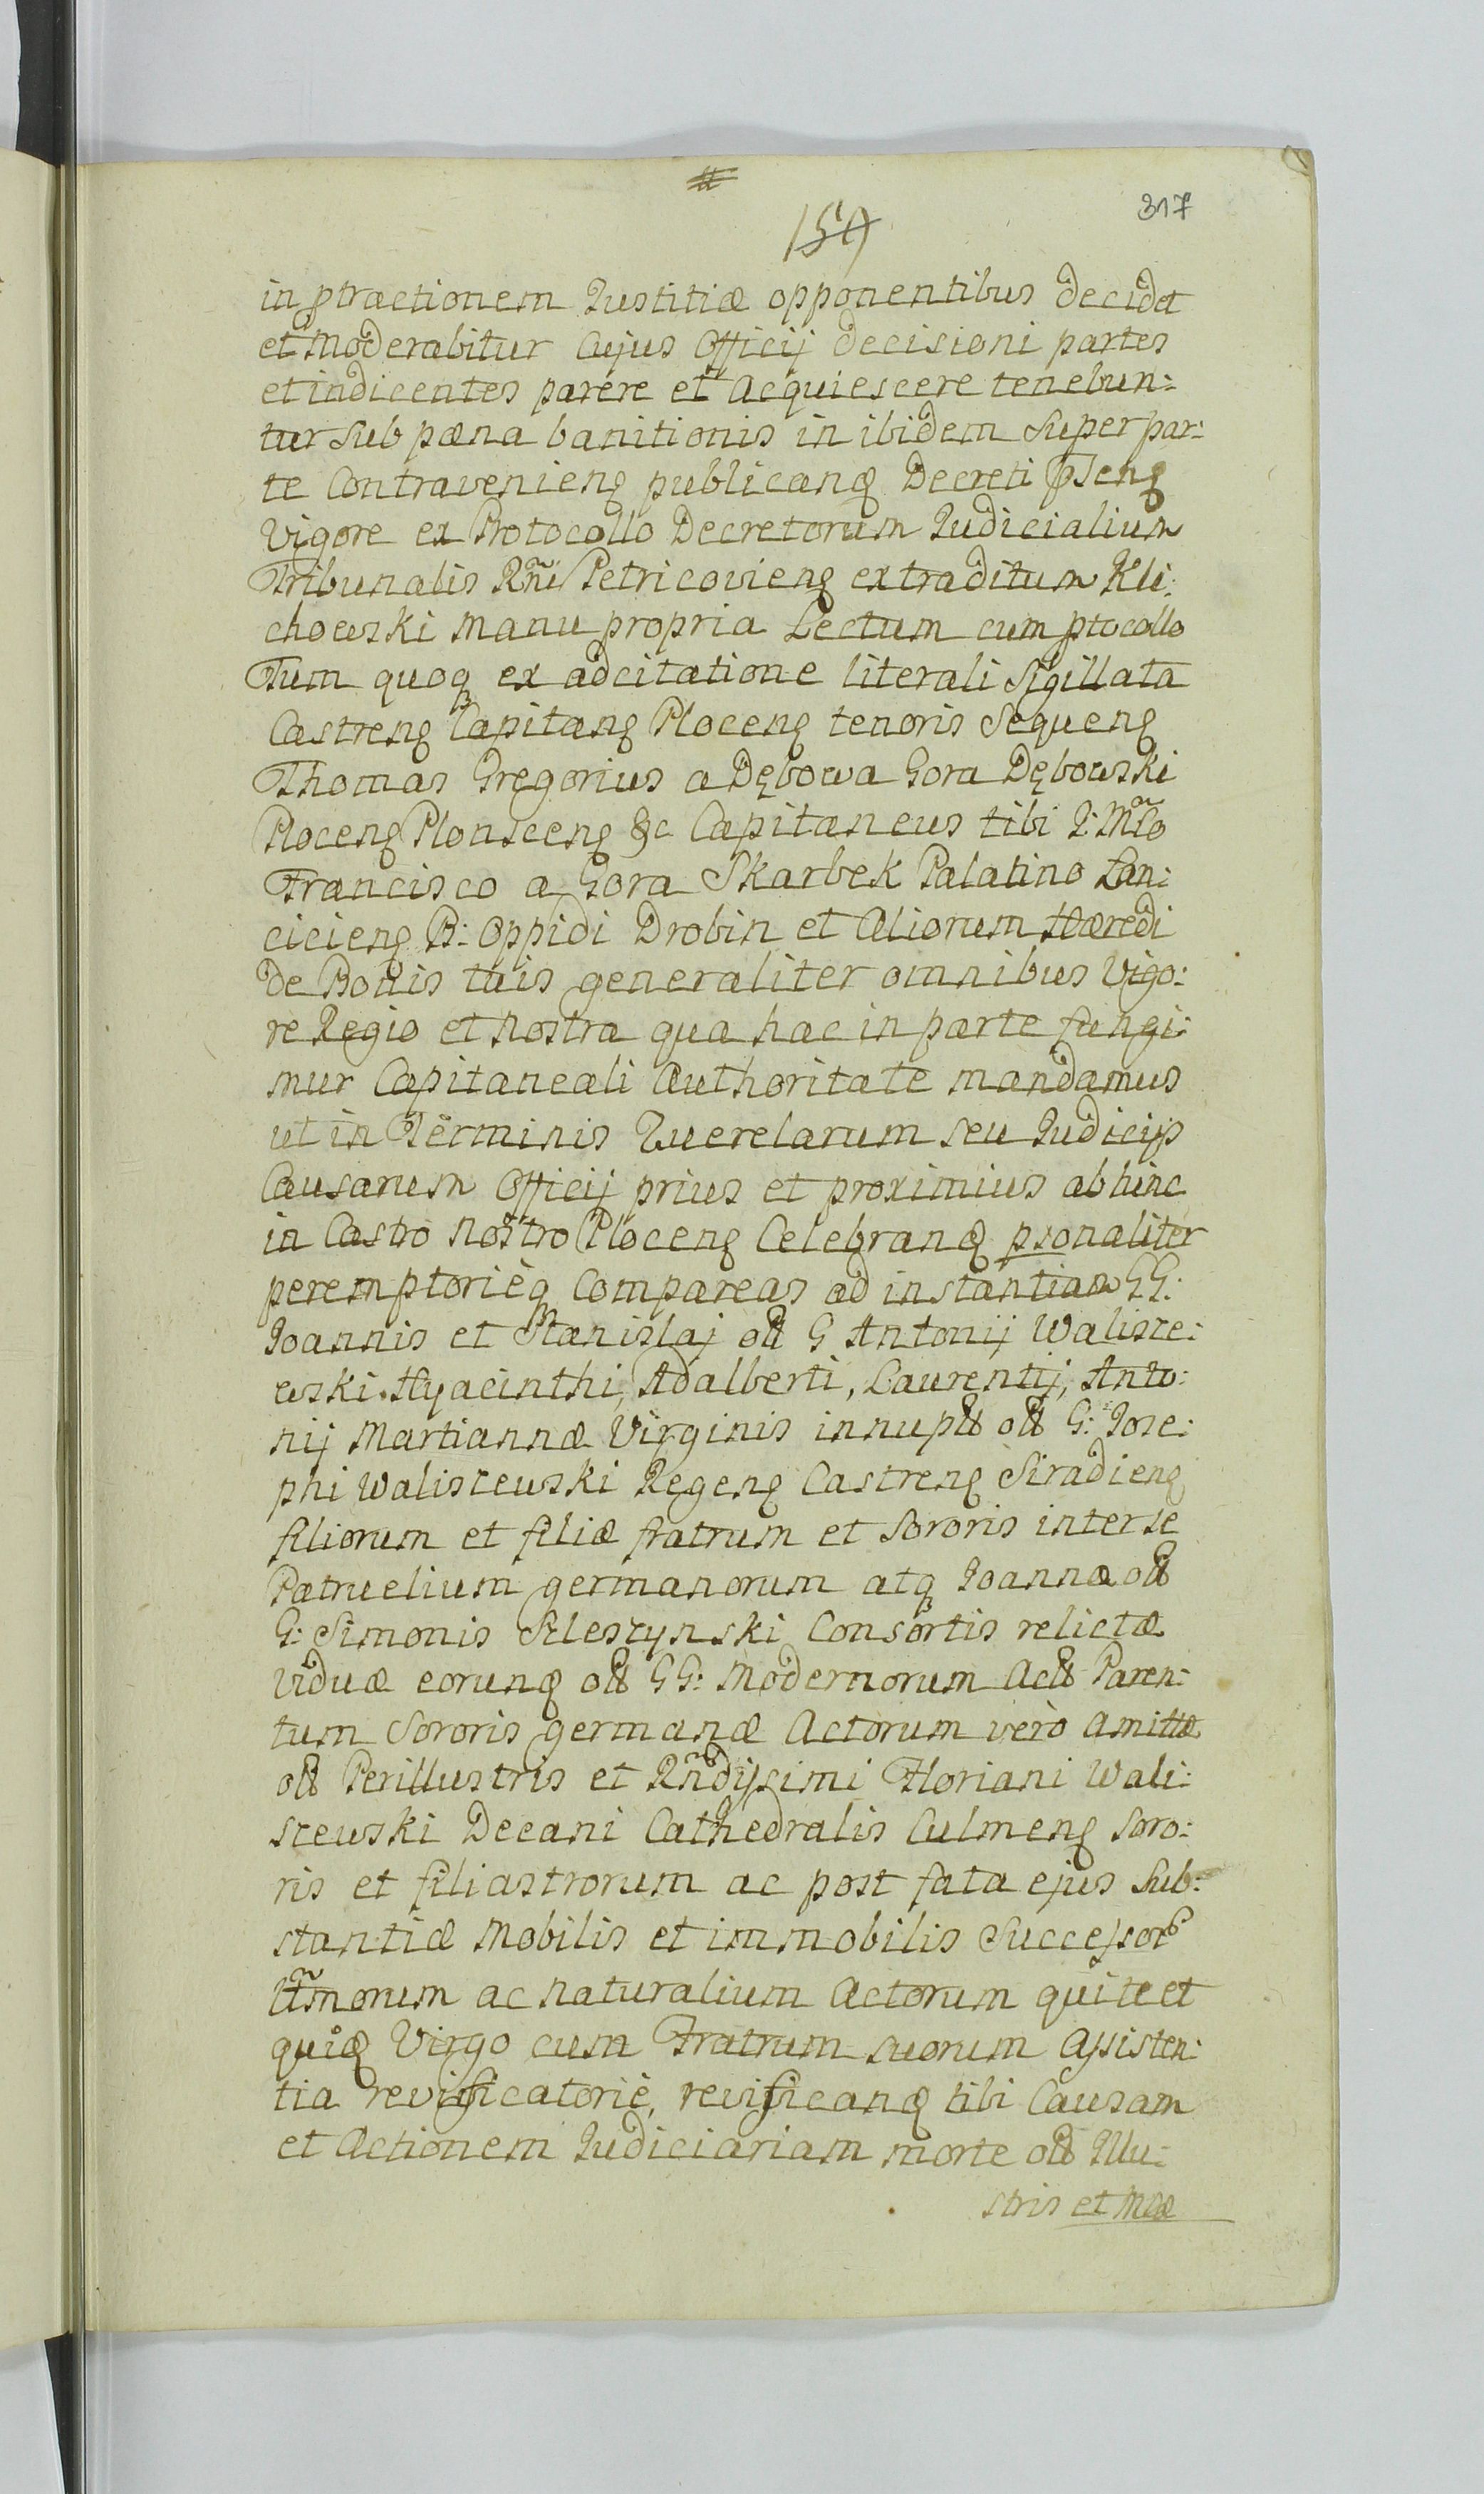 317
159
in ptractionem Justitiæ opponentibus decidet
et Moderabitur Cujus Officij decisioni partes
et indicentes parere et acquiescere tenebun:
tur Sub pæna banitionis in ibidem Super par:
te Contravenienq publicanq Decreti pntenq
Vigore ex Protocollo Decretorum Judicialium
Tribunalis Rñi Petricovienq extraditum Kli:
chowski Manu propria Lectum cum ptocollo
Tum quoq ex adcitatione literali Sigillata
Castrenq Capitanq Plocenq tenoris Sequenq
Thomas Gregorius a Dębowa Gora Dębowski
Plocenq Plonscenq &c Capitaneus tibi J: Mco
Francisco a Gora Skarbek Palatino Lan:
cicienq B: Oppidi Drobin et Aliorum Hæredi
de Bonis tuis generaliter omnibus Vigo:
re Regio et Nostra qua hac in parte fungi:
mur Capitaneali Authoritate mandamus
ut in Terminis Querelarum seu Judicijs
Causarum Officij prius et proximius abhinc
in Castro Nostro Plocenq Celebranq psonaliter
peremptorièq Compareas ad instantiam GG:
Joannis et Stanislaj olt G Antonij Walisze:
wski Hyacinthi, Adalberti, Laurentij, Anto:
nij Martiannæ Virginis innupt olt G: Jose:
phi Waliszewski Regenq Castrenq Siradienq
filiorum et filiæ fratrum et Sororis inter se
Patruelium germanorum atq Joannæ olt
G: Simonis Szleszynski Consortis relictæ
Viduæ eorunq olt GG: Modernorum Act Paren:
tum Sororis germanæ Actorum verò Amittæ
olt Perillustris et Rñdissimi Floriani Wali:
szewski Decani Cathedralis Culmenq Soro:
ris et filiastrorum ac post fata ejus Sub:
stantiæ Mobilis et immobilis Successor
Ltmorum ac Naturalium Actorum qui te et
quiq Virgo cum Fratrum suorum Assisten:
tia revificatoriè, revificanq tibi Causam
et Actionem Judiciariam morte olt Illu:
stris et Mcæ